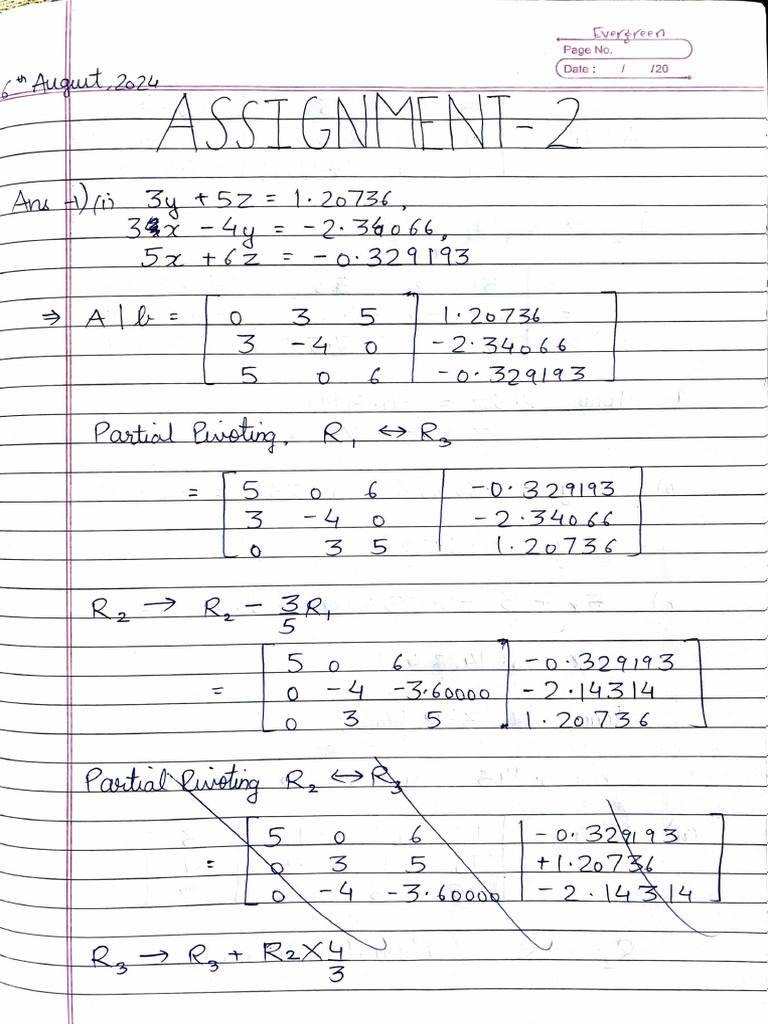 Evergreen
Page No.
Date : / /20
6th August, 2024
ASSIGNMENT-2
Ans -1) (i) 3y + 5z = 1.20736,
3x - 4y = -2.34066,
5x + 6z = -0.329193
⇒ A | b = [ 0 3 5 | 1.20736 ]
[ 3 -4 0 | -2.34066 ]
[ 5 0 6 | -0.329193 ]
Partial Pivoting, R₁ ↔ R₃
= [ 5 0 6 | -0.329193 ]
[ 3 -4 0 | -2.34066 ]
[ 0 3 5 | 1.20736 ]
R₂ → R₂ - 3/5 R₁
= [ 5 0 6 | -0.329193 ]
[ 0 -4 -3.60000 | -2.14314 ]
[ 0 3 5 | 1.20736 ]
Partial Pivoting R₂ ↔ R₃
= [ 5 0 6 | -0.329193 ]
[ 0 3 5 | +1.20736 ]
[ 0 -4 -3.60000 | -2.14314 ]
R₃ → R₃ + R₂ × 4/3